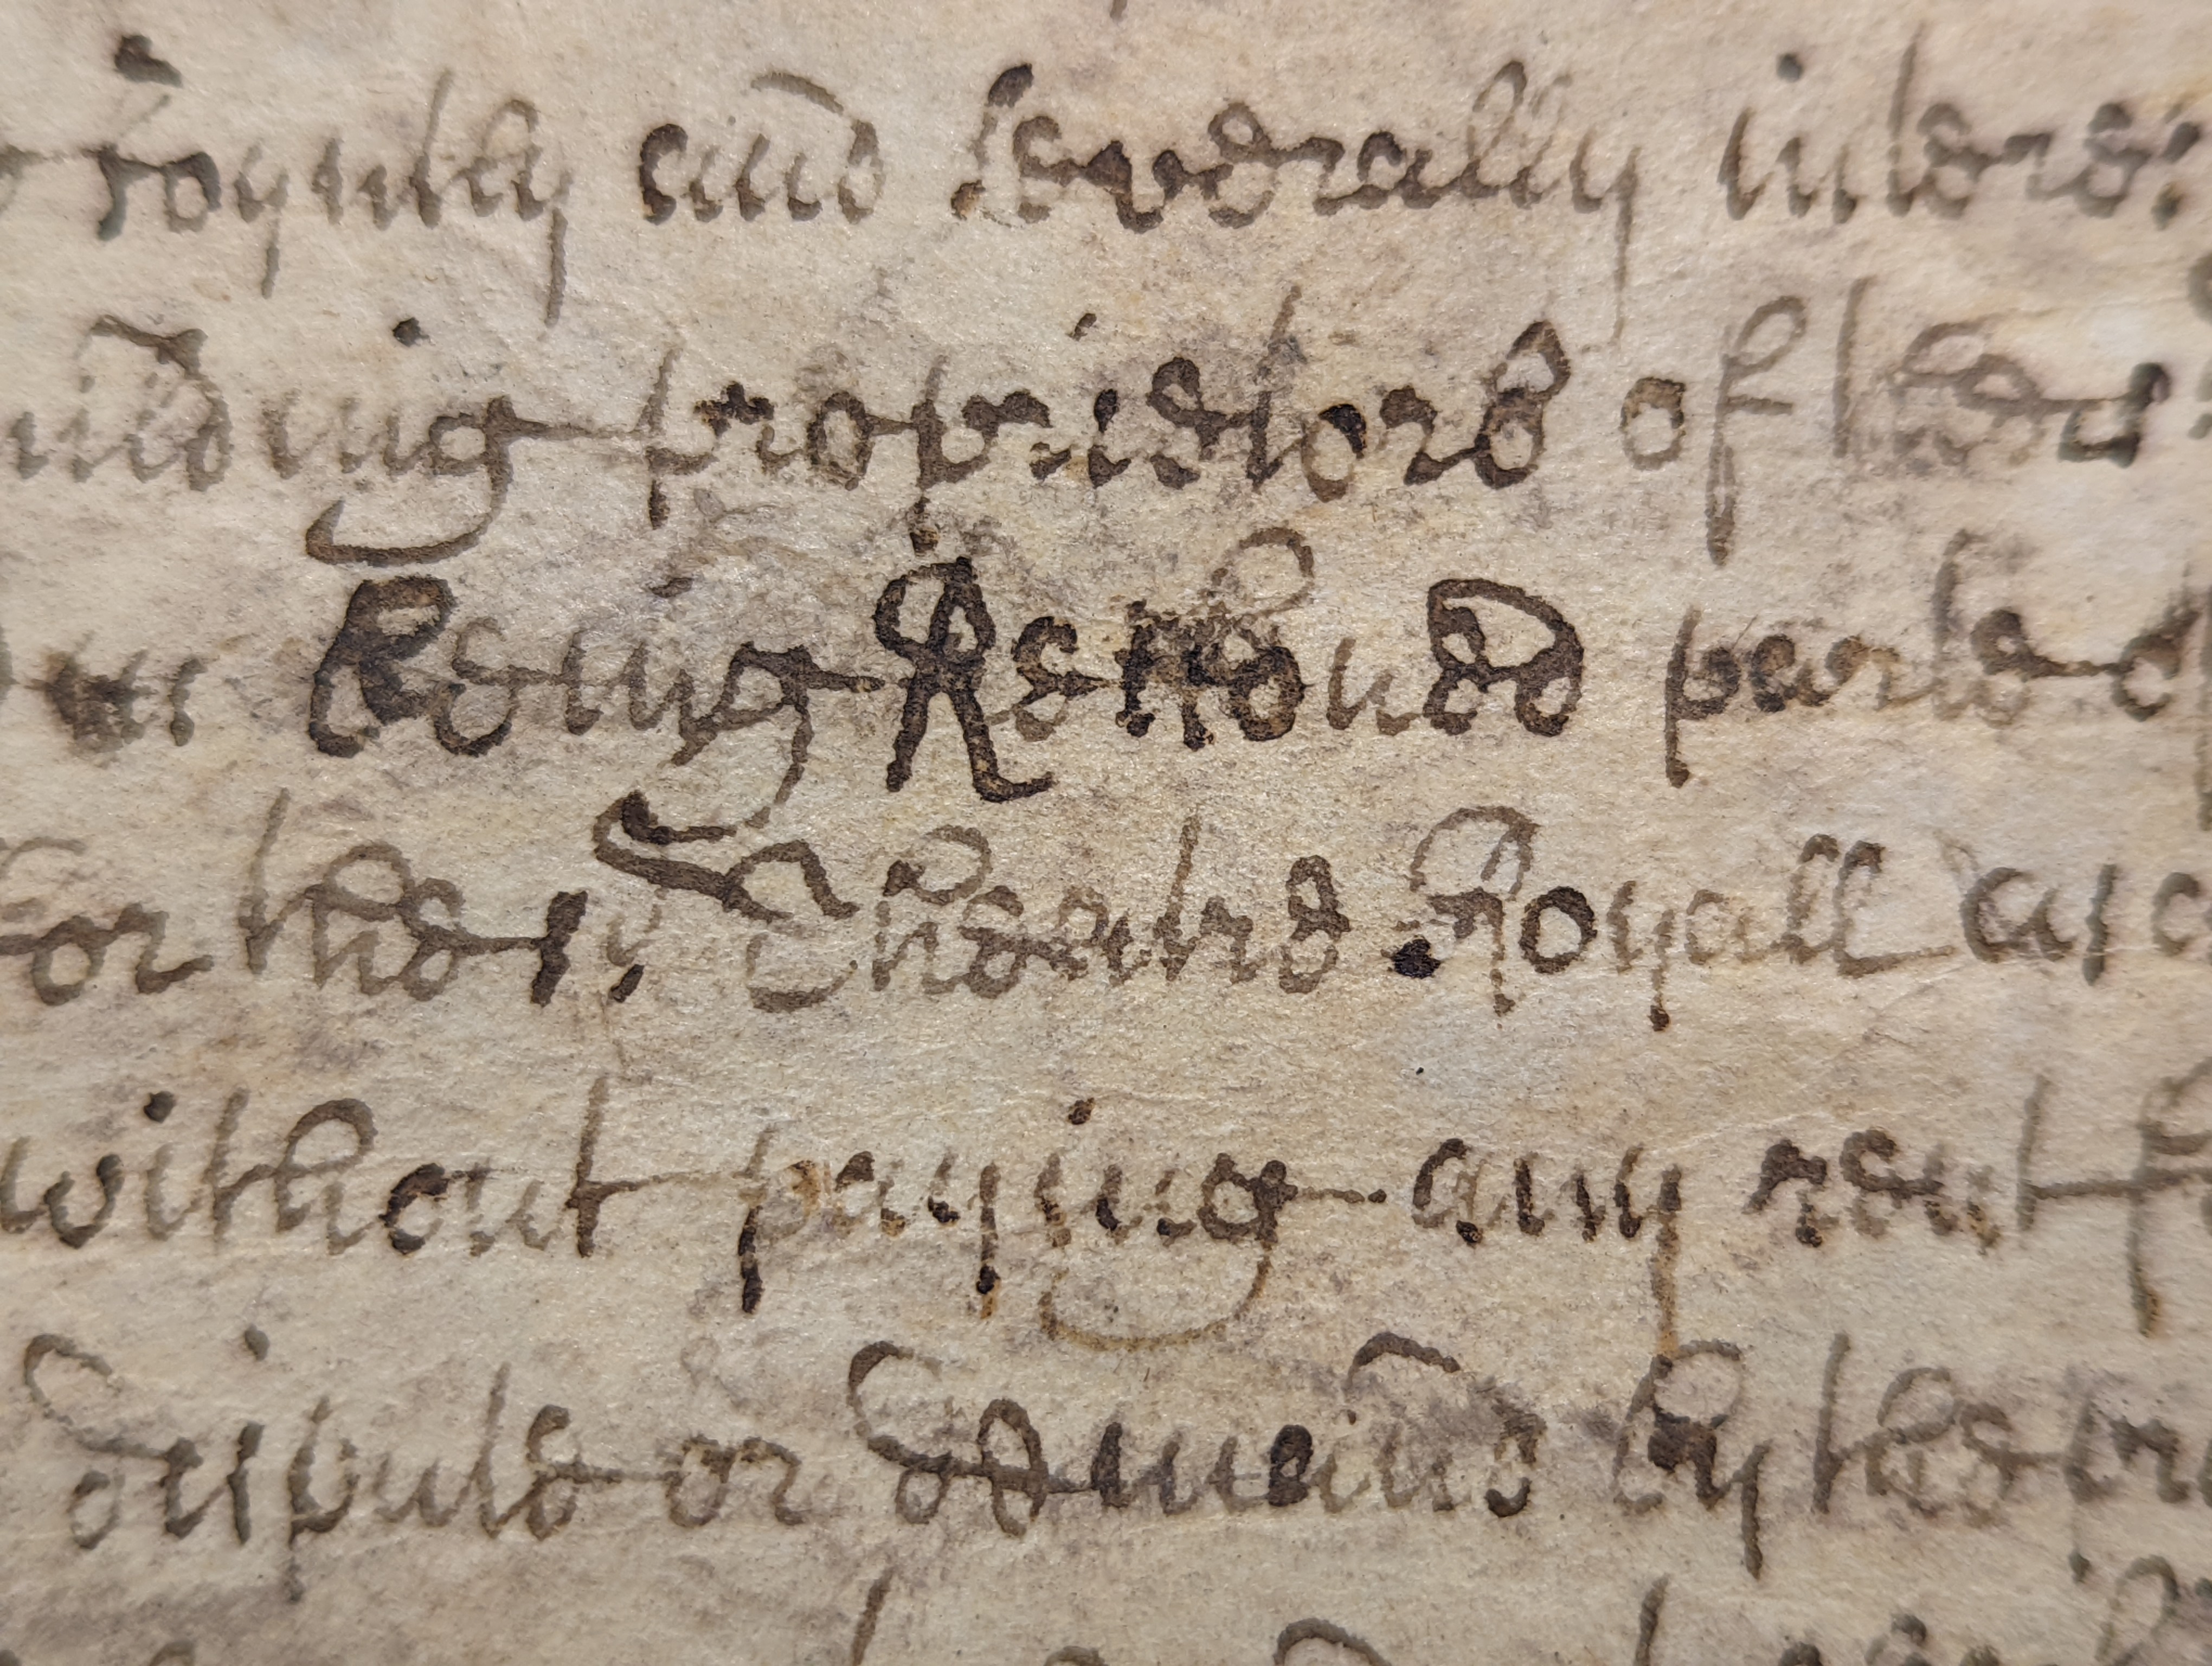 Joyntly and severally interes
unding proprietors of the
being Rehoused parte
for the sd Theatre Royall as
without paying any rent f
dispute or demand by the pr